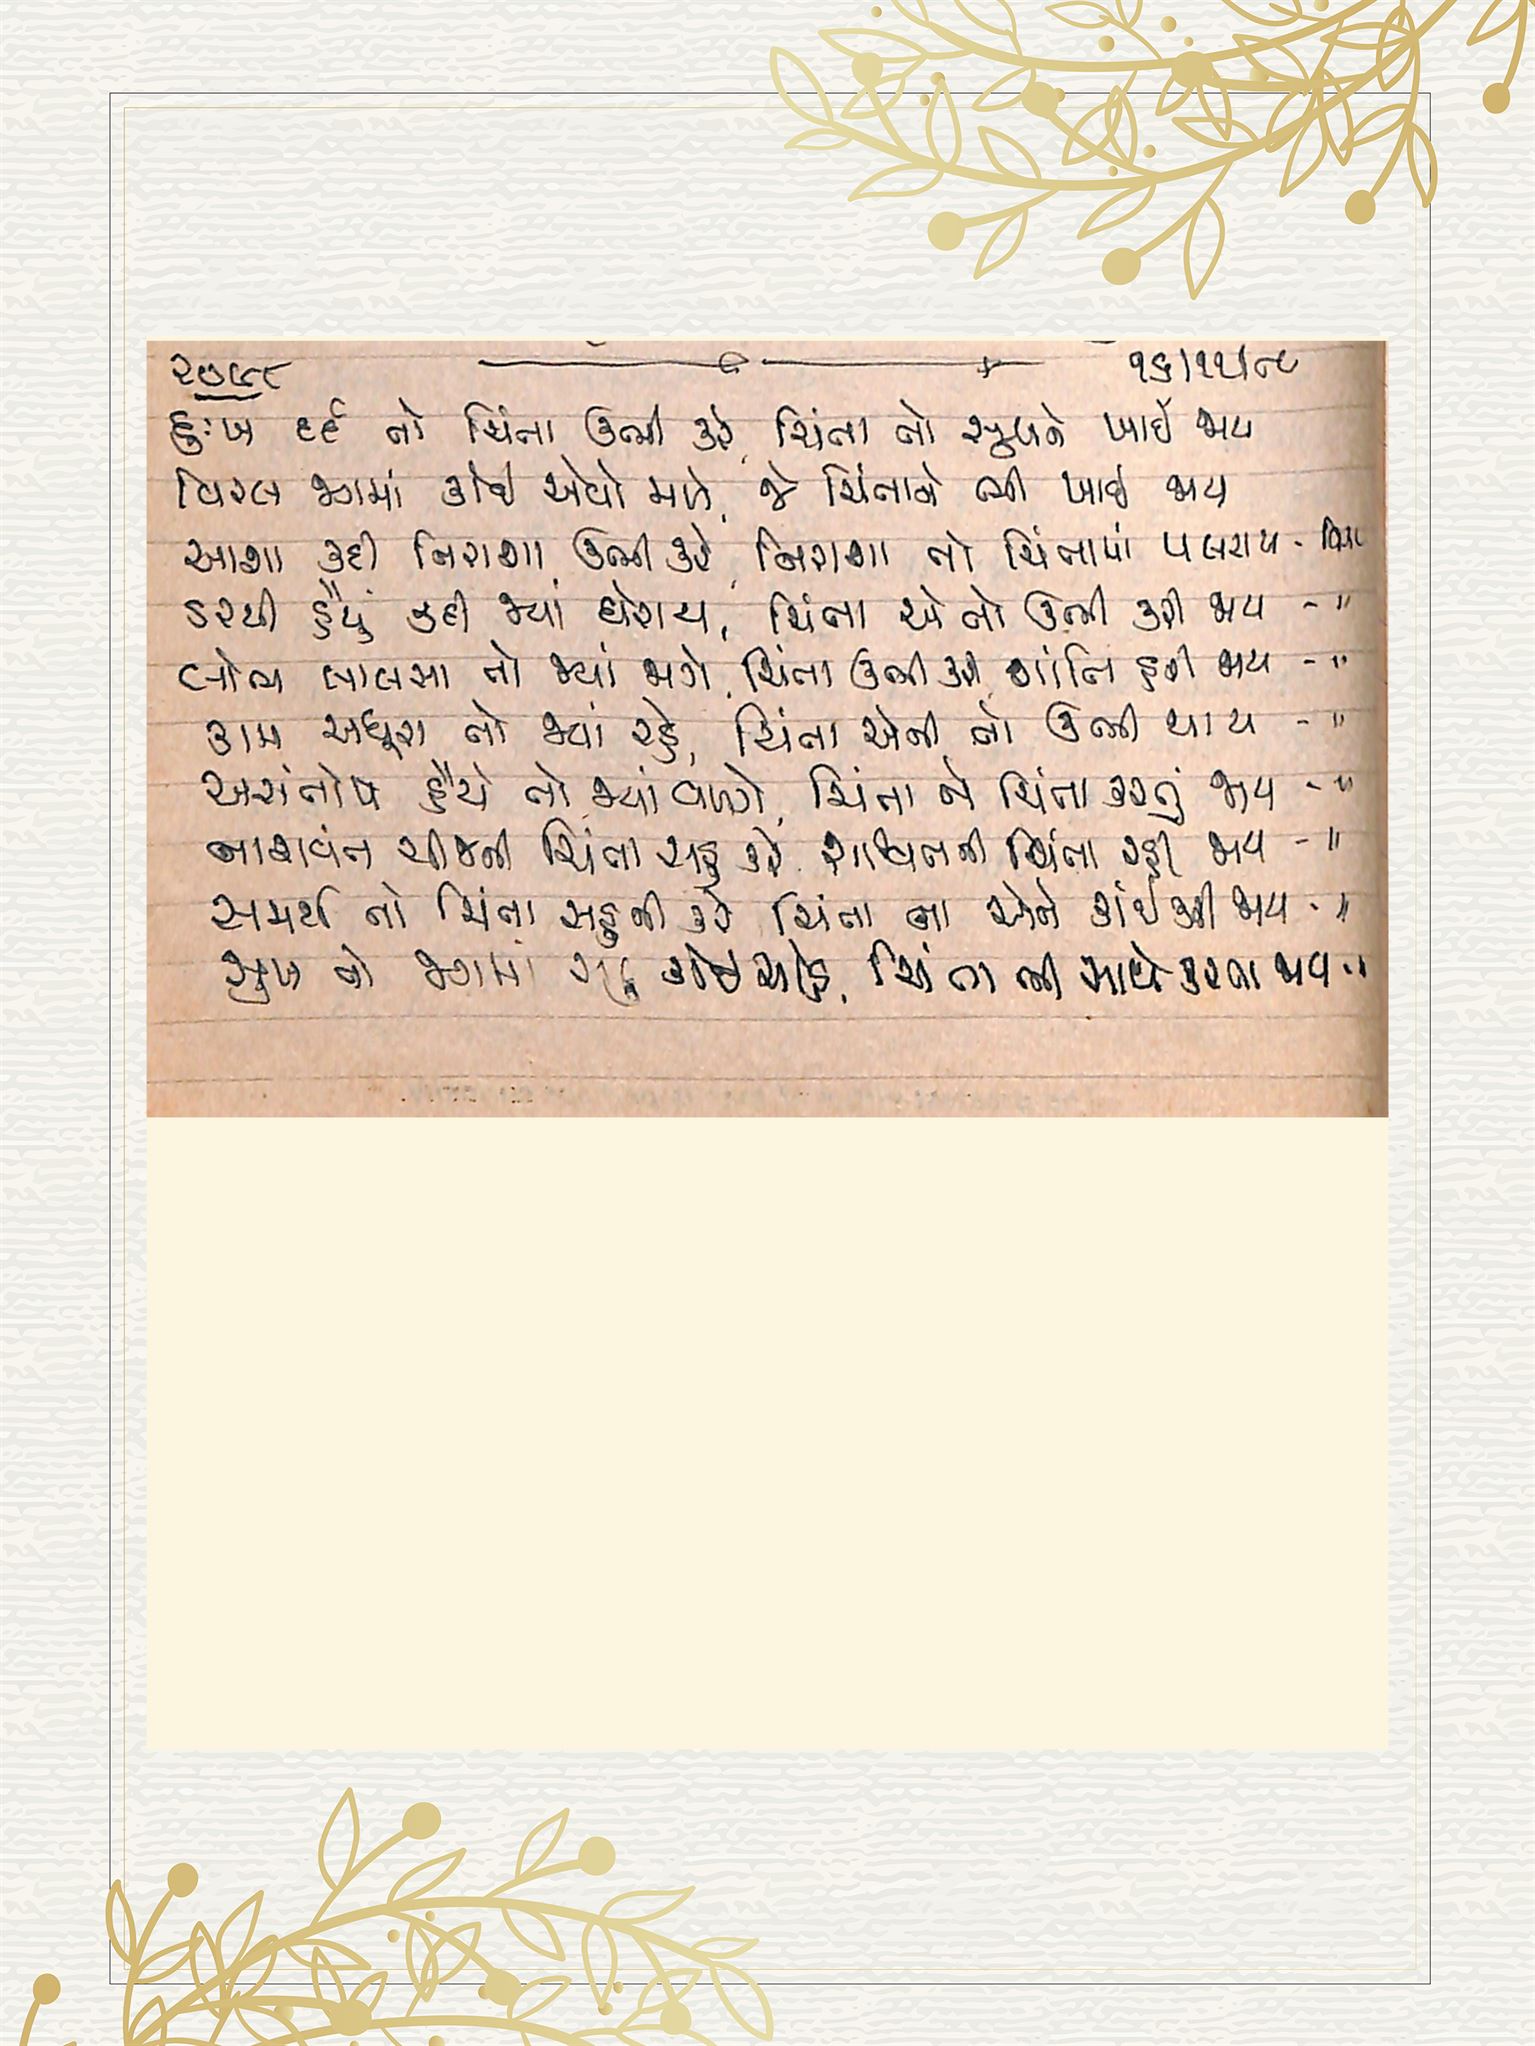 ૨૭૯૯ ૧૬/૧૧/૮૯
દુઃખ દર્દ તો ચિંતા ઉભી કરે, ચિંતા તો સુખને ખાઈ જાય
વિરલ જગમાં કોઈ એવો મળે, જે ચિંતાને ભી ખાઈ જાય
આશા કદી નિરાશા ઉભી કરે, નિરાશા તો ચિંતામાં પલટાય -
ડરથી હૈયું કદી જ્યાં ઘેરાય, ચિંતા એ તો ઉભી કરી જાય - "
લોભ લાલસા તો જ્યાં જાગે, ચિંતા ઉભી કરી શાંતિ હરી જાય - "
કામ અધૂરા તો જ્યાં રહે, ચિંતા એની તો ઉભી થાય - "
અસંતોષ હૈયે તો જ્યાં વળગે, ચિંતા ને ચિંતા કરતું જાય - "
નાશવંત ચીજની ચિંતા સહુ કરે, શાશ્વતની ચિંતા રહી જાય - "
સમર્થ તો ચિંતા સહુની કરે, ચિંતા ના એને કાંઈ કરી જાય - "
સુખ તો જગમાં સહુ કોઈ ચાહે, ચિંતા ભી સાથે કરતા જાય - "